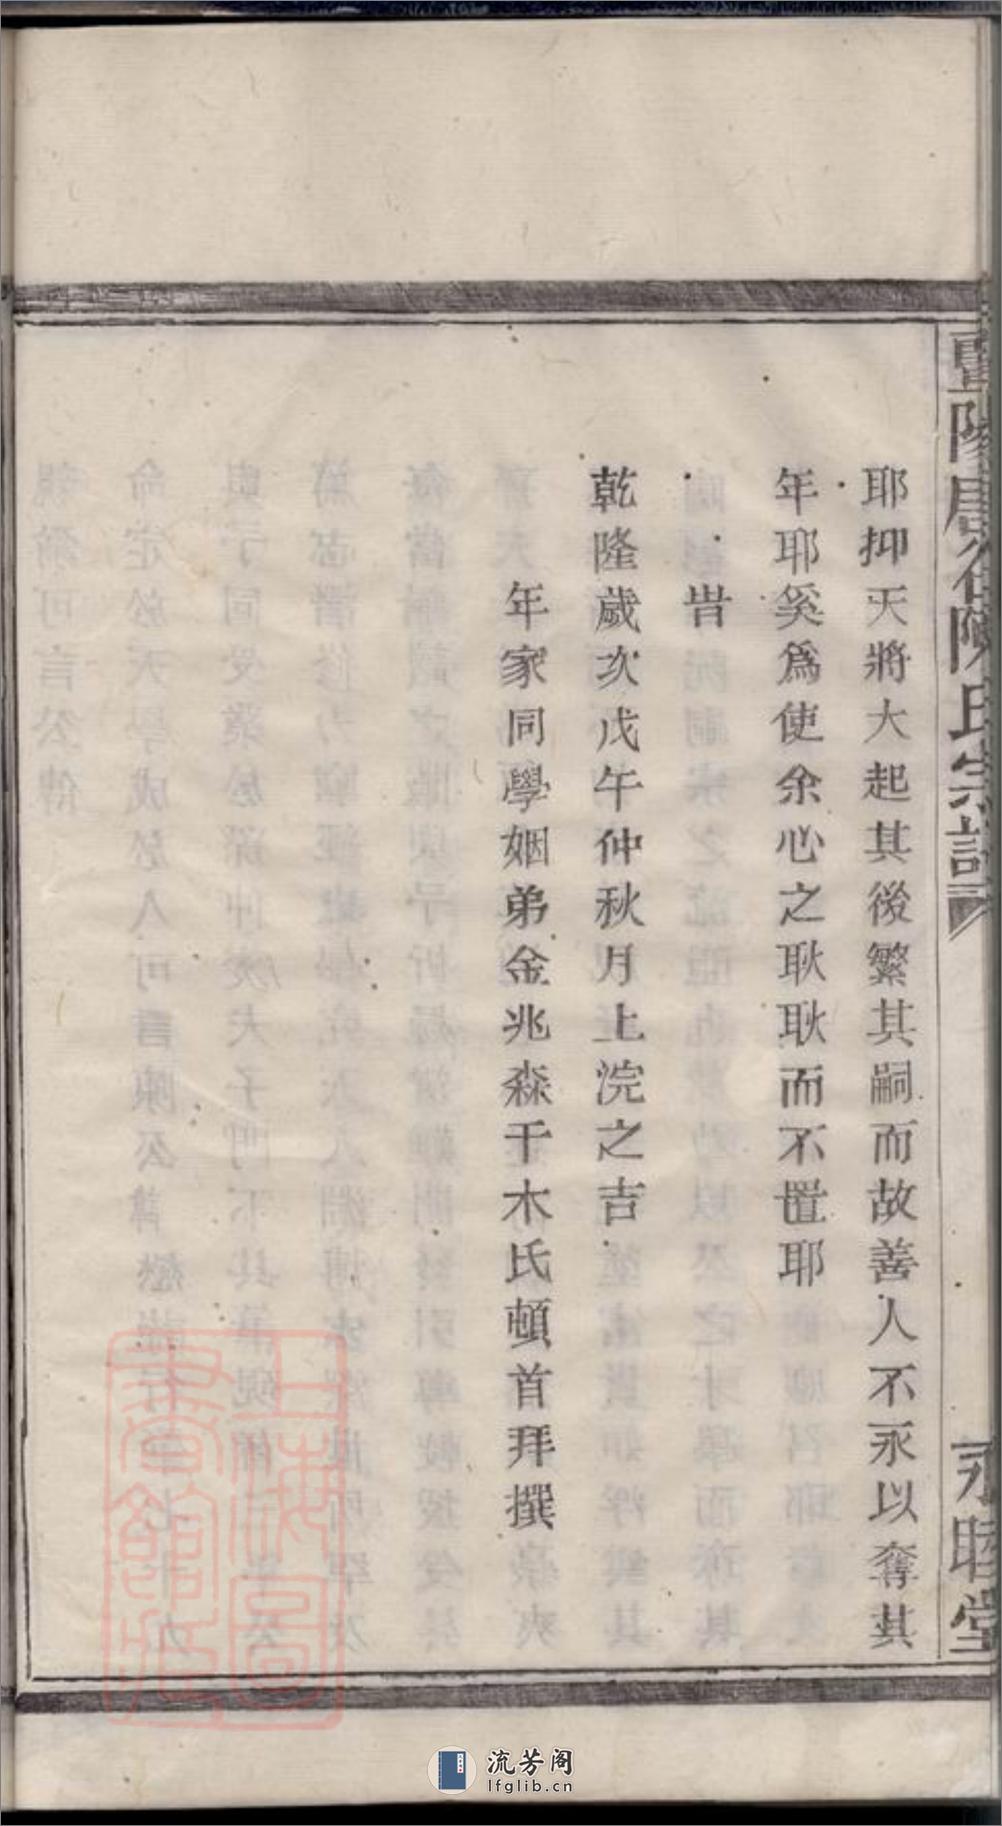 耶抑天將大起其後繁其嗣而故善人不永以奪其
年耶奚爲使余心之耿耿而不置耶
旹
乾隆歲次戊午仲秋月上浣之吉
年家同學姻弟金兆森干木氏頓首拜撰
暨陽 陳氏宗譜
永睦堂
上海圖書館藏
流芳阁
lfglib.cn